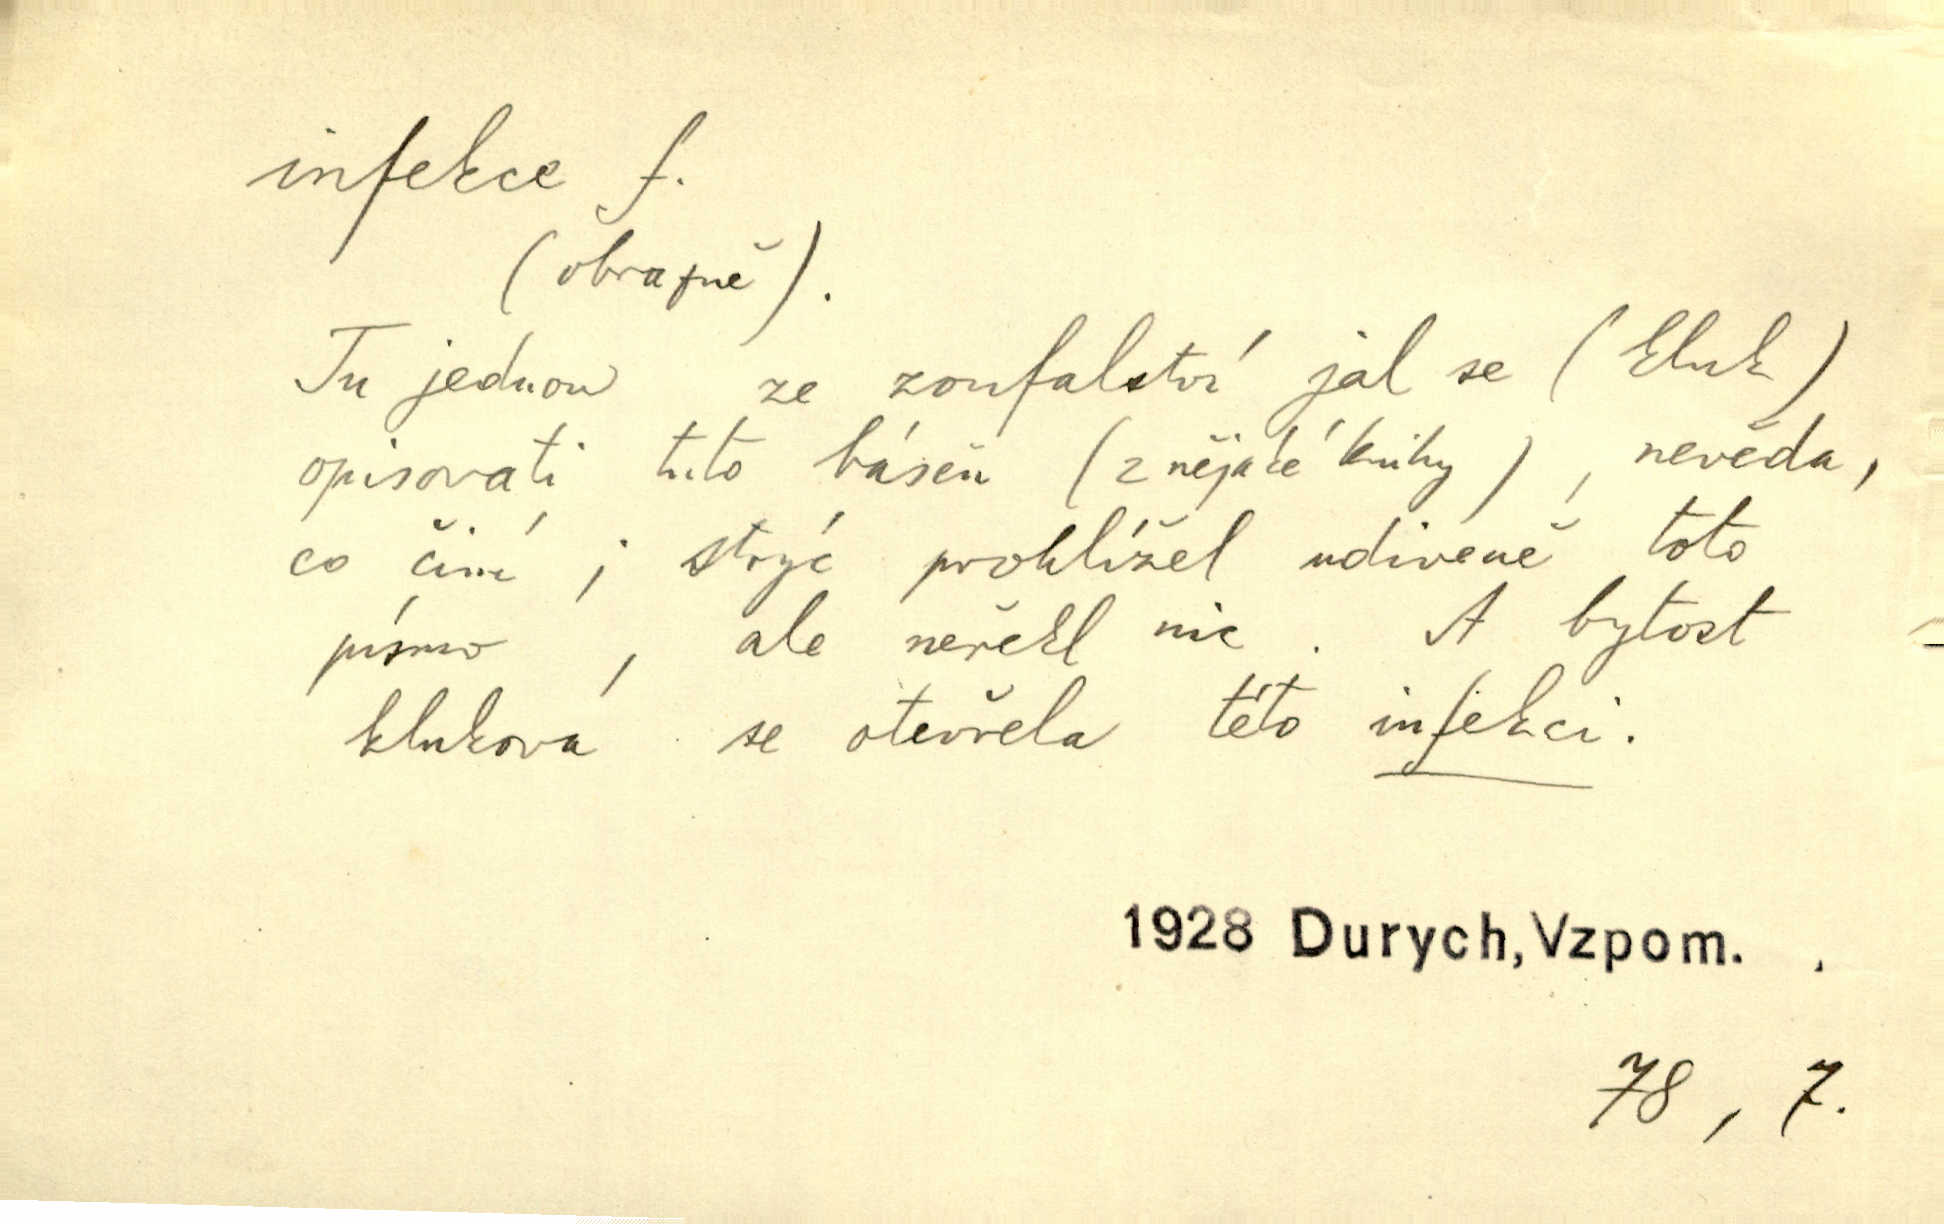 infekce f.
(obrazně).
Tu jednou ze zoufalství jal se (kluk)
opisovati tuto báseň (z nějaké knihy), nevěda,
co činí; strýc prohlížel udiveně toto
písmo, ale neřekl nic. A bytost
klukova se otevřela této infekci.
1928 Durych, Vzpom.
78, 7.